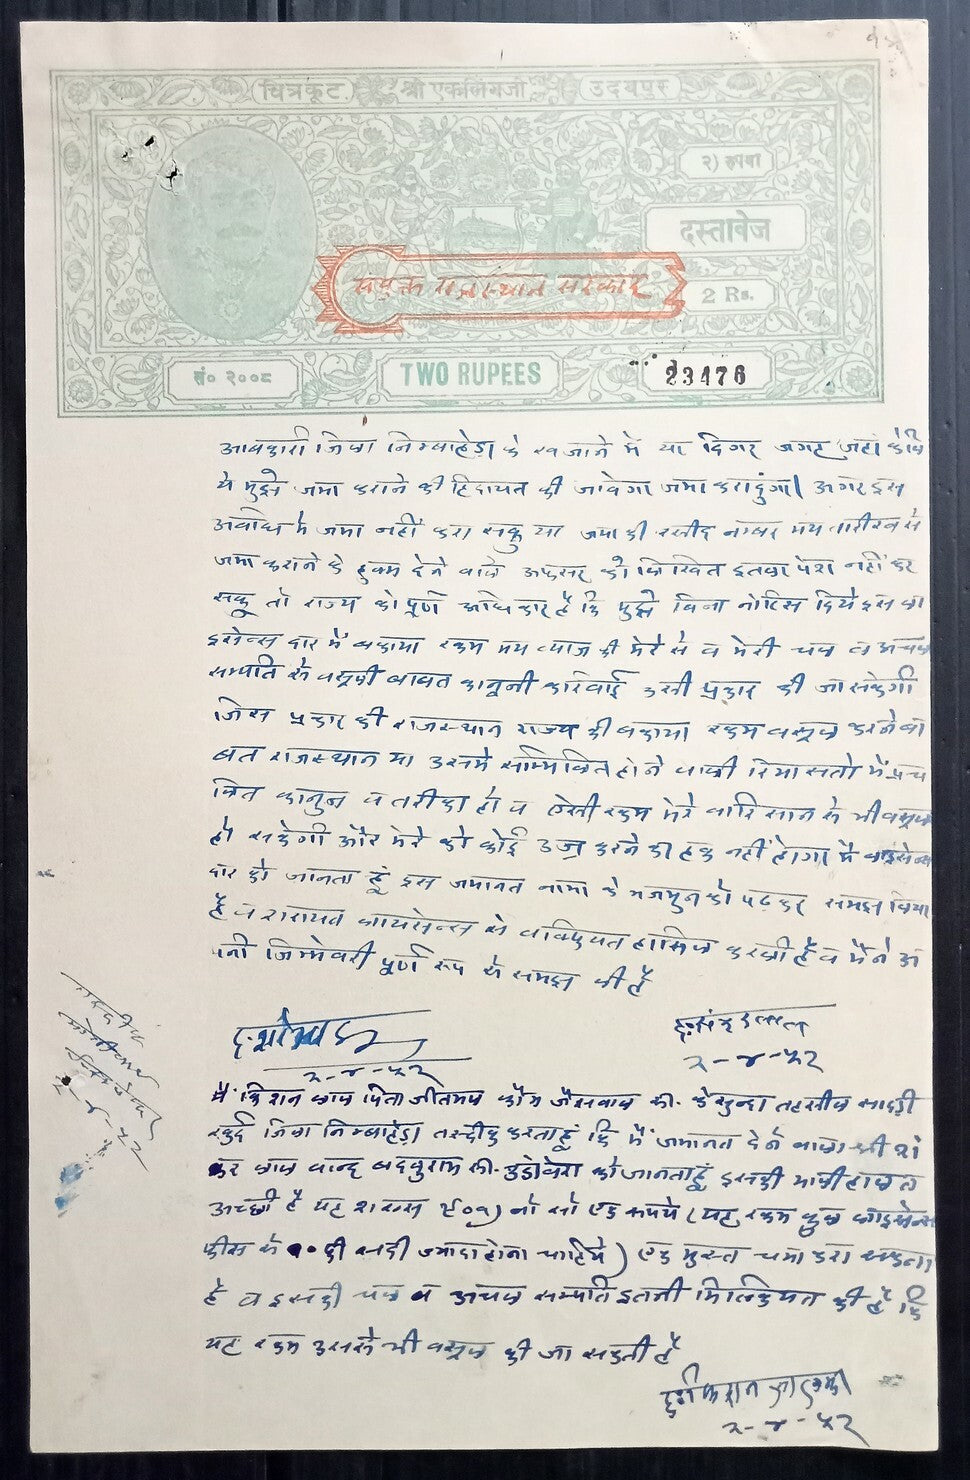 चित्रकूट श्री एकलिंगजी उदयपुर
२) रुपया
दस्तावेज
संयुक्त राजस्थान सरकार
2 Rs.
सं० २००८ TWO RUPEES 23476
आबकारी जिला निम्बाहेडा के खजाने में या दिगर जगह जहां
मुझे जमा कराने की हिदायत की जावेगा जमा करादुंगा। अगर इस
अवधि में जमा नहीं करा सकु या जमा की रसीद नम्बर मय तारीख से
जमा कराने के हुक्म देने वाले अफसर को लिखित इतला पेश नहीं कर
सकू तो राज्य को पूर्ण अधिकार है कि मुझे बिना नोटिस दिये इस ला
इसेन्स दार में बकाया रकम मय व्याज की मेरे से व मेरी चल व अचल
सम्पति से वसूली बाबत कानूनी कारवाई उसी प्रकार की जा सकेगी
जिस प्रकार की राजस्थान राज्य की बकाया रकम वसूल करने बा
बत राजस्थान या उसमे सम्मिलित होने वाली रियासतो में प्रच
लित कानुन व तरीका हो व ऐसी रकम मेरे वारिसान से भी वसूल
हो सकेगी और मेरे को कोई उज्र करने का हक नहीं होगा मै लाइसेन्स
दार को जानता हूं इस जमानत नामा के मजमुन को पढ कर समझ लिया
है व शरायत लायसेन्स से वाकफियत हासिल करली है व मैने अ
पनी जिम्मेवरी पूर्ण रूप से समझ ली है
२-४-५२
२-४-५२
२-४-५२
मैं किशन लाल पिता जीतमल कौम जैसवाल सा. केसुन्दा तहसील सादड़ी
खुर्द जिला निम्बाहेडा तस्दीक करता हूं कि मैं जमानत देने वाला श्री शं
कर लाल वल्द बदरुराम सा. को जानता हूं इसकी माली हालत
अच्छी है यह शख्स ९०१) नो सो एक रूपये (यह रकम कुल लाइसेन्स
फीस से १० फी सदी ज्यादा होना चाहिये) एक मुस्त जमा करा सकता
है व इसकी चल व अचल सम्पति इतनी मिलकियत की है कि
यह रकम उससे भी वसूल की जा सकती है
२-४-५२